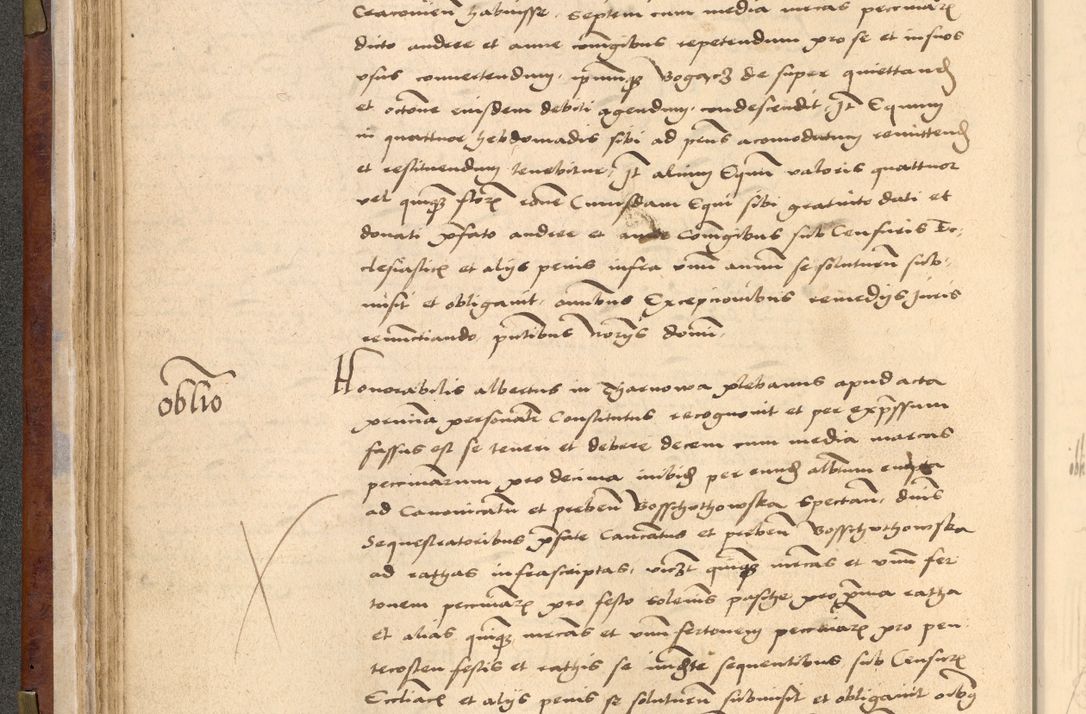 Craconien habuisse, Septem cum media mrcas pecuniar
dicto andree et anne coniugibus repetendum pro se et in suos
usus convertendum, ipsumque Bogacz de super quiettand
et octone eiusdem debiti agendum, condescendit, It Equum
in quattuor hebdomadis sibi ad pens acomodatum remittend
et restituendum tenebitur, It alium Equm valoris quattuor
vel quinque flor rone Cuiusdam Equi sibi gratuito dati et
donati pfato andree et anne Coniugibus sub Censuris Ec,
clesiastic et alijs penis infra unu annu se soluturu sub,
misit et obligavit, omnibus Excepcionibus remedijs Juris
renunctiando, pntibus Norijs domi,
oblio
Honorabilis albertus in Tharnowa plebanus apud acta
prnia personalr Constitutus recognovit et per expssum
fassus est se teneri et debere decem cum media marcas
pecuniarum pro decima inibid per eund albtum
ad Canonicatu et preben Bosschothowska Spectan, dnis
Sequestratoribus pfate Canctus et preben Bosschothowska
ad rathas infrascriptas, viczt quinque mrcas et unu fer
tonem pecuniar pro festo solenis pasche pro pma ratha
et alias quinque mrcas et unu fertonem pecuniar pro pen
tecosten festis et rathis se inmdte sequentibus sub Censur
Eccliac et alijs penis se soluturu submisit et obligavit oibq